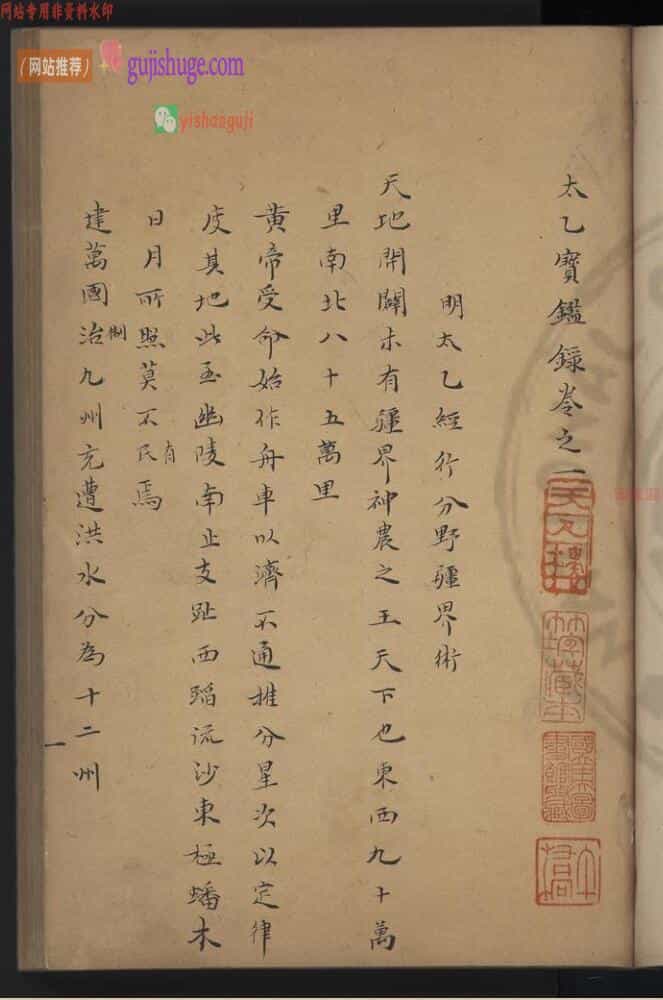 网站专用非资料水印
（网站推荐） gujishuge.com
yishanguji
太乙寳鑑錄卷之一
明太乙經行分野疆界術
天地開闢未有疆界神農之王天下也東西九十萬
里南北八十五萬里
黃帝受命始作舟車以濟不通推分星次以定律
度其地北至幽陵南止支趾西蹈流沙東極蟠木
日月所照莫不民有焉
建萬國治制九州充遭洪水分為十二州
一